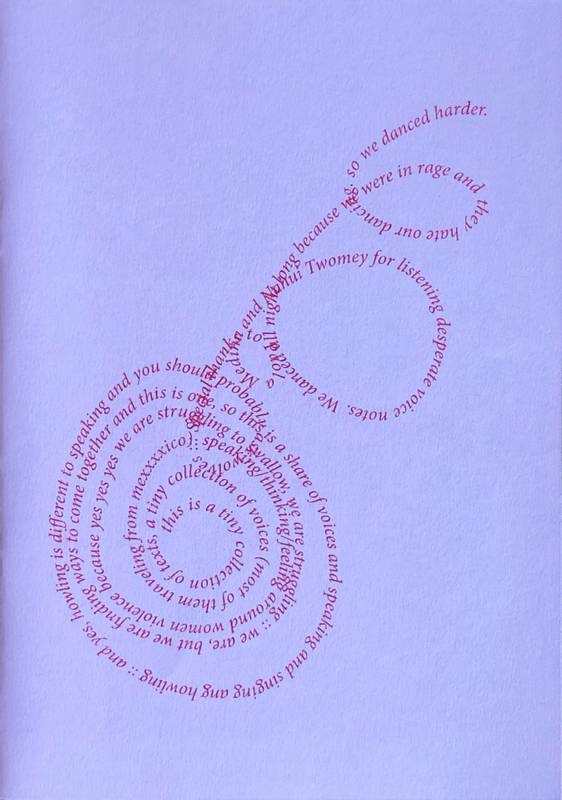 this is a tiny collection of texts, a tiny collection of voices (most of them traveling from mexxxxico):: speaking/thinking/feeling around women violence because yes yes yes we are struggling to swallow, we are struggling :: we are, but we are finding ways to come together and this is one, so this is a share of voices and speaking and singing ang howling :: and yes, howling is different to speaking and you should probably
Special thanks
Nahui Twomey for listening desperate voice notes. We danced all night long because we were in rage and they hate our dancing: so we danced harder.